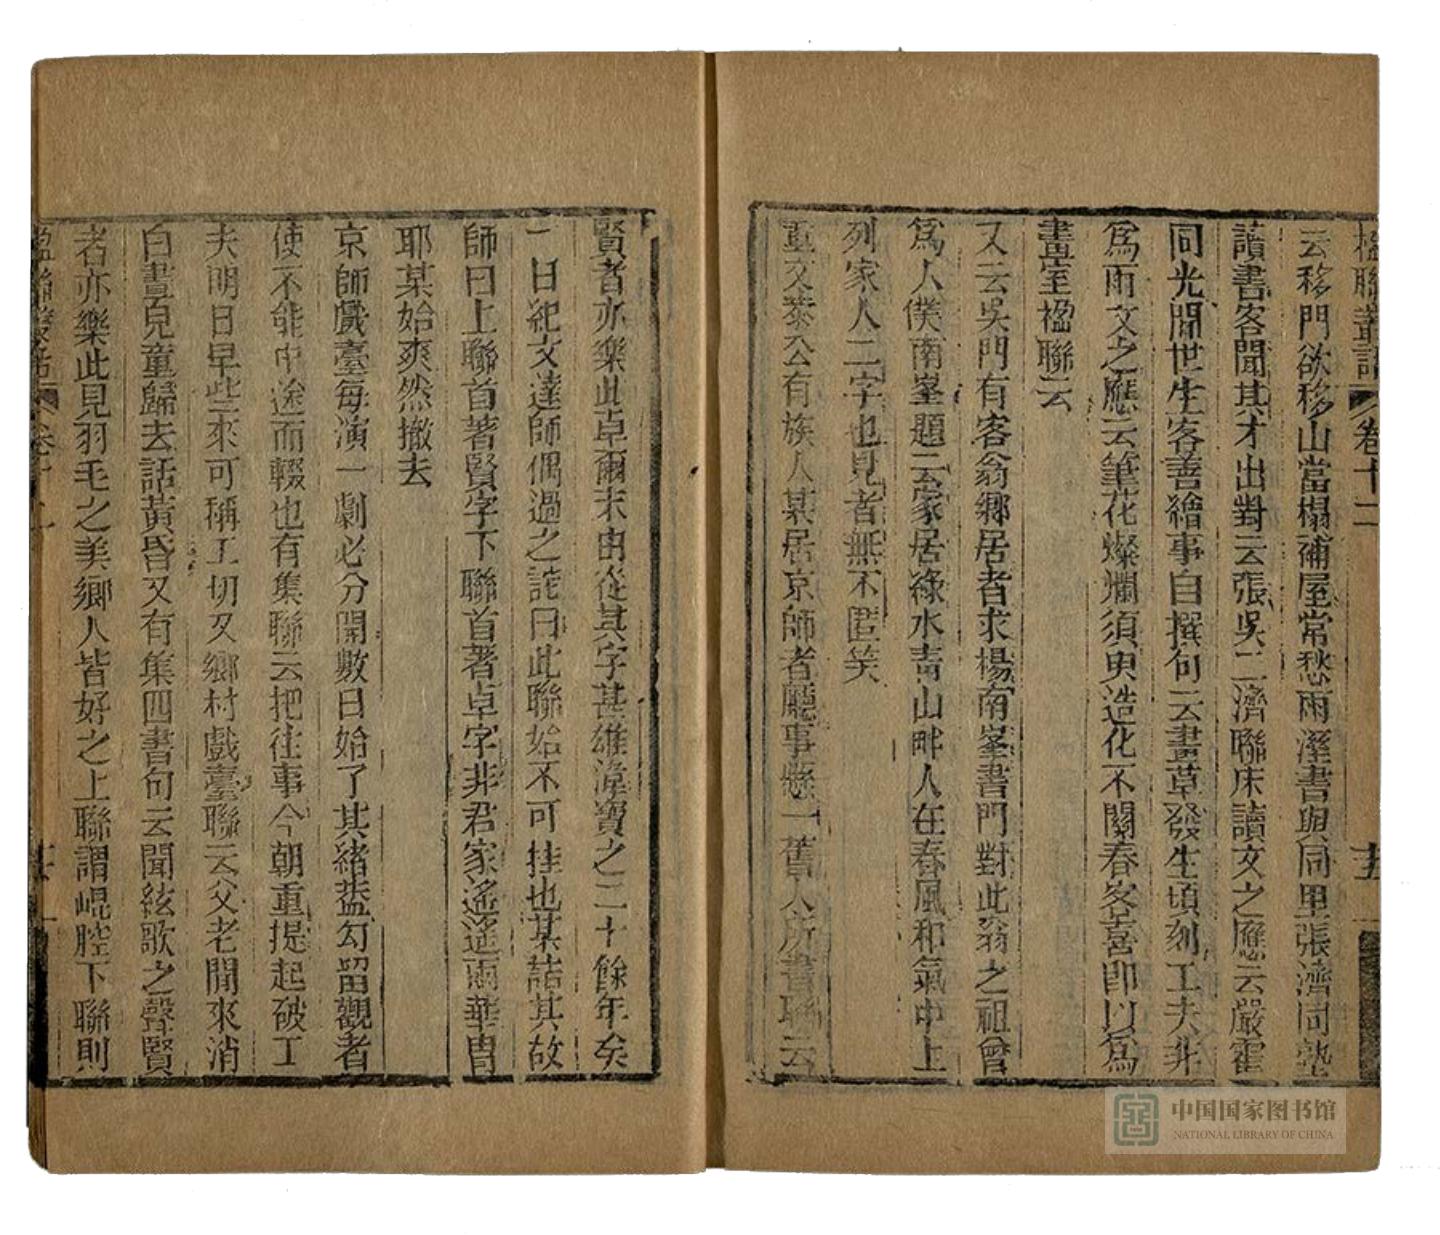 楹聯叢話 卷十二 五
云移門欲移山當榻補屋常愁雨溼書與同里張濟同塾
讀書客聞其才出對云張吳二濟聯床讀文之應云嚴霍
同光間世生客善繪事自撰句云畫草發生頃刻工夫非
為雨文之應云筆花燦爛須臾造化不關春客喜即以為
畫室楹聯云
又云吳門有客翁鄉居者求楊南峯書門對此翁之祖曾
為人僕南峯題云家居綠水靑山畔人在春風和氣中上
列家人二字也見者無不匿笑
董文恭公有族人某居京師者廳事懸一舊人所書聯云
賢者亦樂此卓爾末由從其字甚雄渾寶之二十餘年矣
一日紀文達師偶過之詫曰此聯始不可挂也某詰其故
師曰上聯首著賢字下聯首著卓字非君家遙遙兩華胄
耶某始爽然撤去
京師戲臺每演一劇必分開數日始了其緒葢勾留觀者
使不能中途而輟也有集聯云把往事今朝重提起破工
夫明日早些來可稱工切又鄉村戲臺聯云父老閒來消
白晝兒童歸去話黃昏又有集四書句云聞絃歌之聲賢
者亦樂此見羽毛之美鄉人皆好之上聯謂崐腔下聯則
楹聯叢話 卷十二